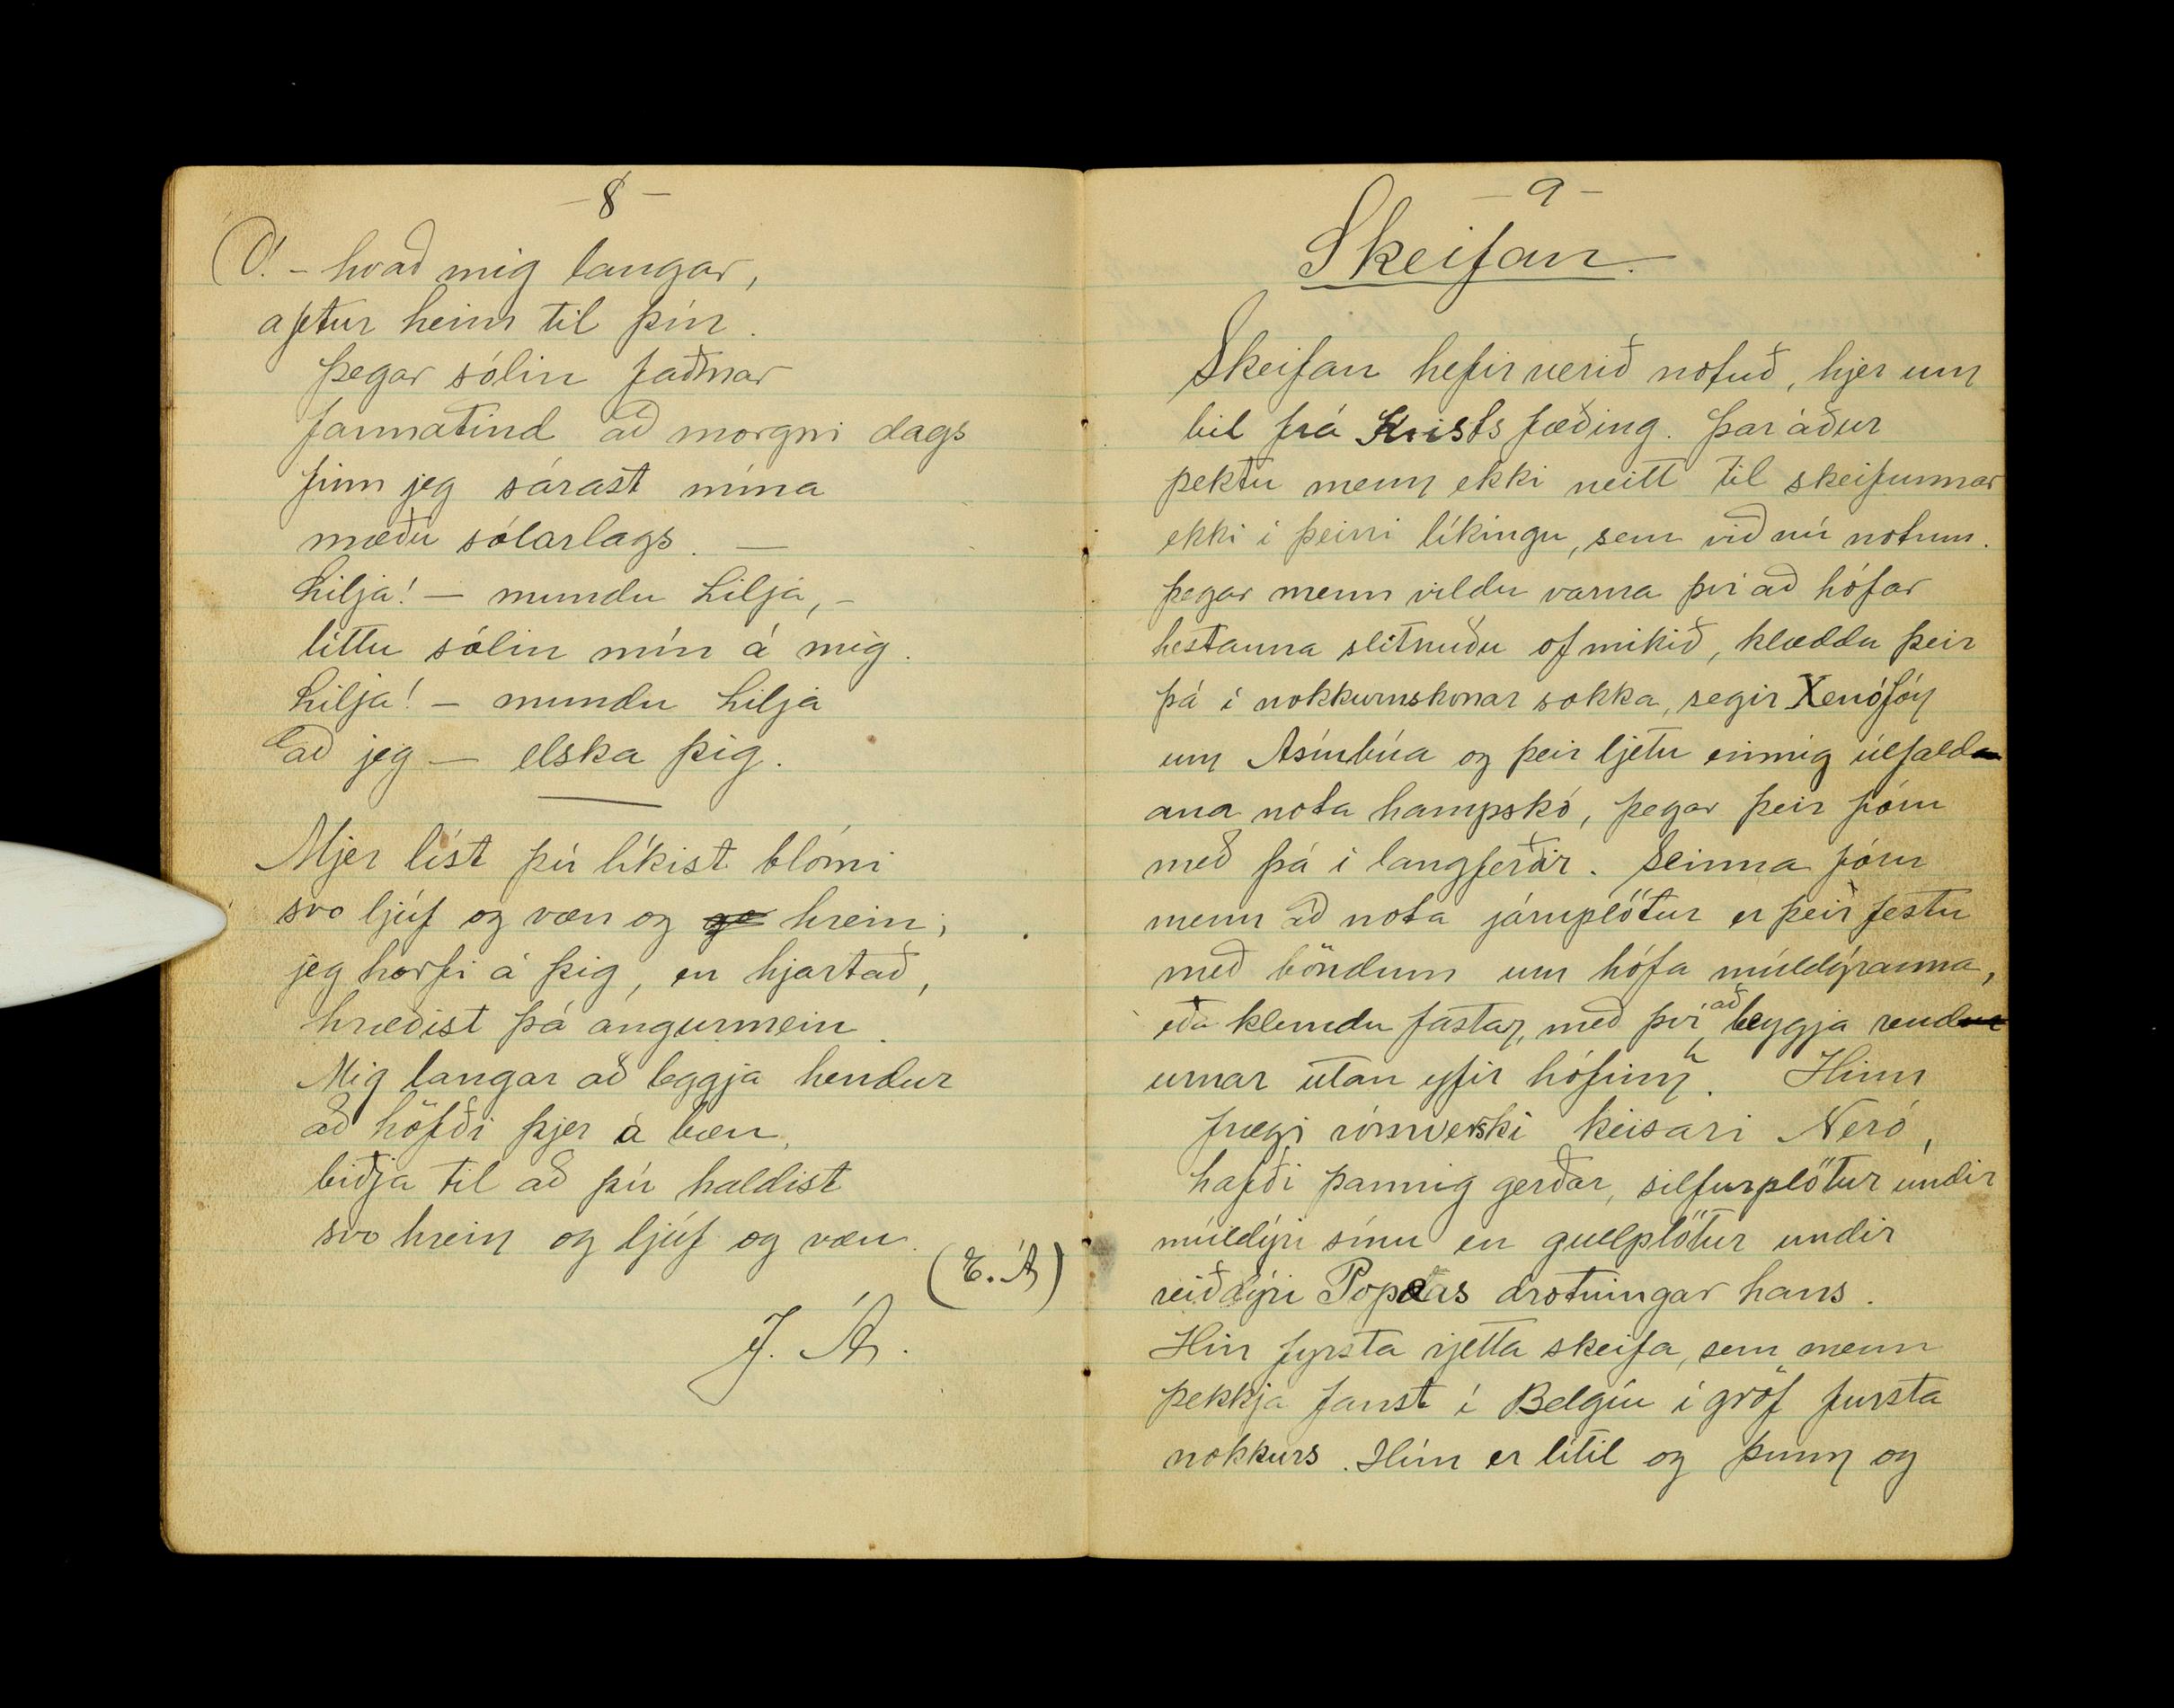 - 8 -
Ó! - hvað mig langar,
aftur heim til þín.
þegar sólin faðmar
fannatind að morgni dags
finn jeg sárast mína
mæðu sólarlags. —
Lilja! - mundu Lilja, -
líttu sólin mín á mig.
Lilja! - mundu Lilja
að jeg - elska þig.
Mjer líst þú líkist blómi
svo ljúf og væn og hrein;
jeg horfi á þig, en hjartað,
hræðist þá angurmein.
Mig langar að leggja hendur
að höfði þjer á bæn,
biðja til að þú haldist
svo hrein og ljúf og væn.
(E. Á)
J. Á.
- 9 -
Skeifan.
Skeifan hefir verið notuð, hjer um
bil frá Krists fæðing. Þar áður
þektu menn ekki neitt til skeifunnar
ekki í þeirri líkingu, sem við nú notum.
þegar menn vildu varna því að hófar
hestanna slitnuðu of mikið, klæddu þeir
þá í nokkurnskonar sokka, segir Xenófón
um Asíubúa og þeir ljetu einnig úlfald
ana nota hampskó, þegar þeir fóru
með þá í langferðir. Seinna fóru
menn að nota járnplötur er þeir festu
með böndum um hófa múldýranna,
eða klemdu fastar, með því að beygja rend
urnar utan yfir hófinn. Hinn
frægi rómverski keisari Neró,
hafði þannig gerðar, silfurplötur undir
múldýri sínu en gullplötur undir
reiðdýri Popeas drotningar hans.
Hin fyrsta rjetta skeifa, sem menn
þekkja fanst í Belgíu í gröf fursta
nokkurs. Hún er lítil og þunn og